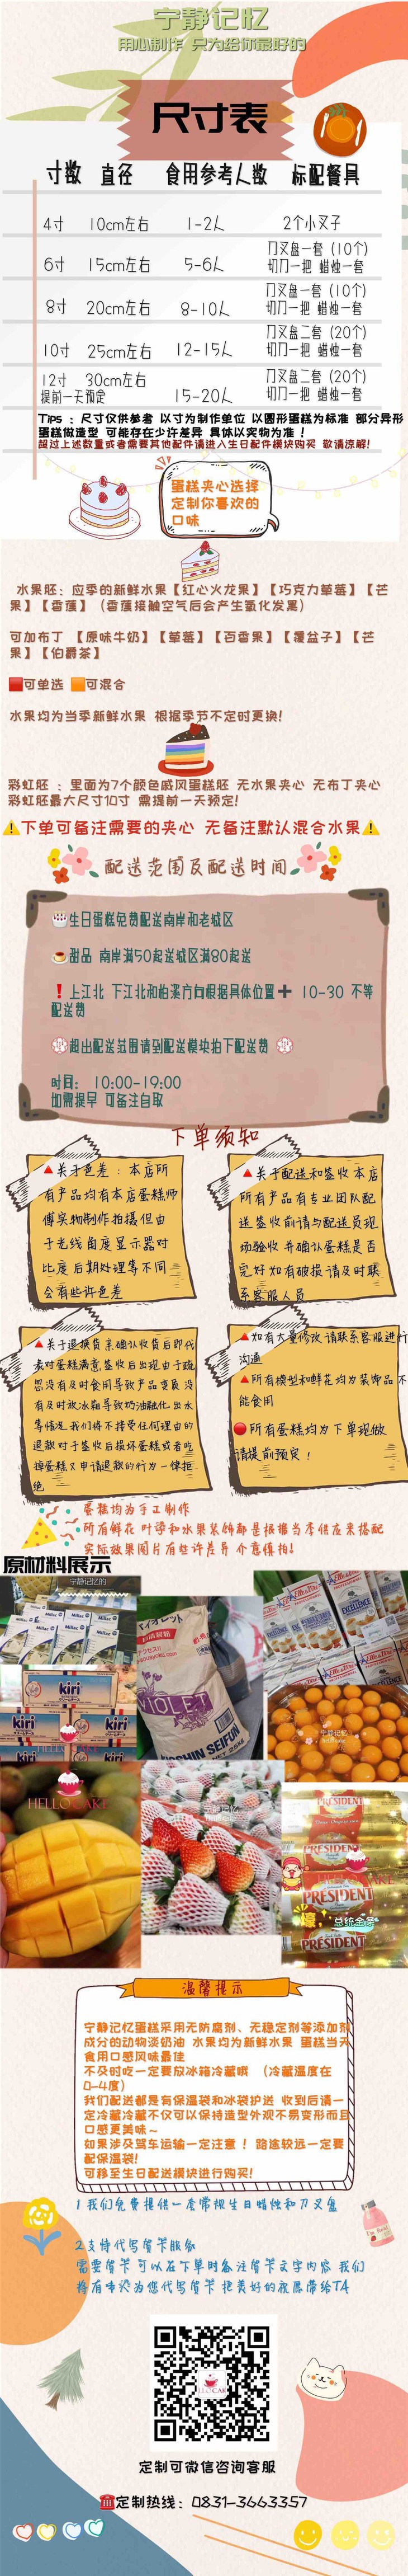 宁静记忆
用心制作 只为给你最好的
尺寸表
寸数 直径 食用参考人数 标配餐具
4寸 10cm左右 1-2人 2个小叉子
6寸 15cm左右 5-6人 刀叉盘一套（10个）
切刀一把 蜡烛一套
8寸 20cm左右 8-10人 刀叉盘一套（10个）
切刀一把 蜡烛一套
10寸 25cm左右 12-15人 刀叉盘二套（20个）
切刀一把 蜡烛一套
12寸 30cm左右 15-20人 刀叉盘二套（20个）
提前一天预定 切刀一把 蜡烛一套
Tips：尺寸仅供参考 以寸为制作单位 以圆形蛋糕为标准 部分异形
蛋糕做造型 可能存在少许差异 具体以实物为准！
超过上述数量或者需要其他配件请进入生日配件模块购买 敬请谅解!
蛋糕夹心选择
定制你喜欢的
口味
水果胚：应季的新鲜水果【红心火龙果】【巧克力草莓】【芒
果】【香蕉】（香蕉接触空气后会产生氧化发黑）
可加布丁 【原味牛奶】【草莓】【百香果】【覆盆子】【芒
果】【伯爵茶】
🟥可单选 🟧可混合
水果均为当季新鲜水果 根据季节不定时更换!
彩虹胚 ：里面为7个颜色戚风蛋糕胚 无水果夹心 无布丁夹心
彩虹胚最大尺寸10寸 需提前一天预定!
⚠️下单可备注需要的夹心 无备注默认混合水果⚠️
配送范围及配送时间
🎂生日蛋糕免费配送南岸和老城区
甜品 南岸满50起送城区满80起送
❗上江北 下江北和柏溪方向根据具体位置➕ 10-30 不等
配送费
💮超出配送范围请到配送模块拍下配送费 💮
时间： 10:00-19:00
如需提早 可备注自取
下单须知
🔺关于色差：本店所
有产品均有本店蛋糕师
傅实物制作拍摄但由
于光线角度显示器对
比度后期处理等不同
会有些许色差
🔺关于配送和签收本店
所有产品有专业团队配
送签收前请与配送员现
场验收并确认蛋糕是否
完好如有破损请及时联
系客服人员
🔺关于退换货亲确认收货后即代
表对蛋糕满意签收后出现由于疏
忽没有及时食用导致产品变质没
有及时放冰箱导致奶油融化出水
等情况我们将不接受任何理由的
退款对于签收后损坏蛋糕或者吃
掉蛋糕又申请退款的行为一律拒
绝
🔺如有大量修改请联系客服进行
沟通
🔺所有模型和鲜花均为装饰品不
能食用
🔴所有蛋糕均为下单现做
请提前预定！
蛋糕均为手工制作
所有鲜花 叶子和水果装饰都是根据当季供应来搭配
实际效果图片有些许差异 介意慎拍!
原材料展示
宁静记忆的
kiri
kiri
HELLO CAKE
VIOLET
NISSHIN SEIFUN
EXCELLENCE
宁静记忆
HELLO CAKE
宁静记忆
PRESIDENT
PRESIDENT
PRESIDENT
PRESIDENT
总统金条
温馨提示
宁静记忆蛋糕采用无防腐剂、无稳定剂等添加剂
成分的动物淡奶油 水果均为新鲜水果 蛋糕当天
食用口感风味最佳
不及时吃一定要放冰箱冷藏哦 （冷藏温度在
0-4度）
我们配送都是有保温袋和冰袋护送 收到后请一
定冷藏冷藏不仅可以保持造型外观不易变形而且
口感更美味~
如果涉及驾车运输一定注意！路途较远一定要
配保温袋!
可移至生日配送模块进行购买!
1 我们免费提供一套常规生日蜡烛和刀叉盘
2 支持代写贺卡服务
需要贺卡 可以在下单时备注贺卡文字内容 我们
将有专人为您代写贺卡 把美好的祝愿带给TA
定制可微信咨询客服
☎定制热线：0831-3663357